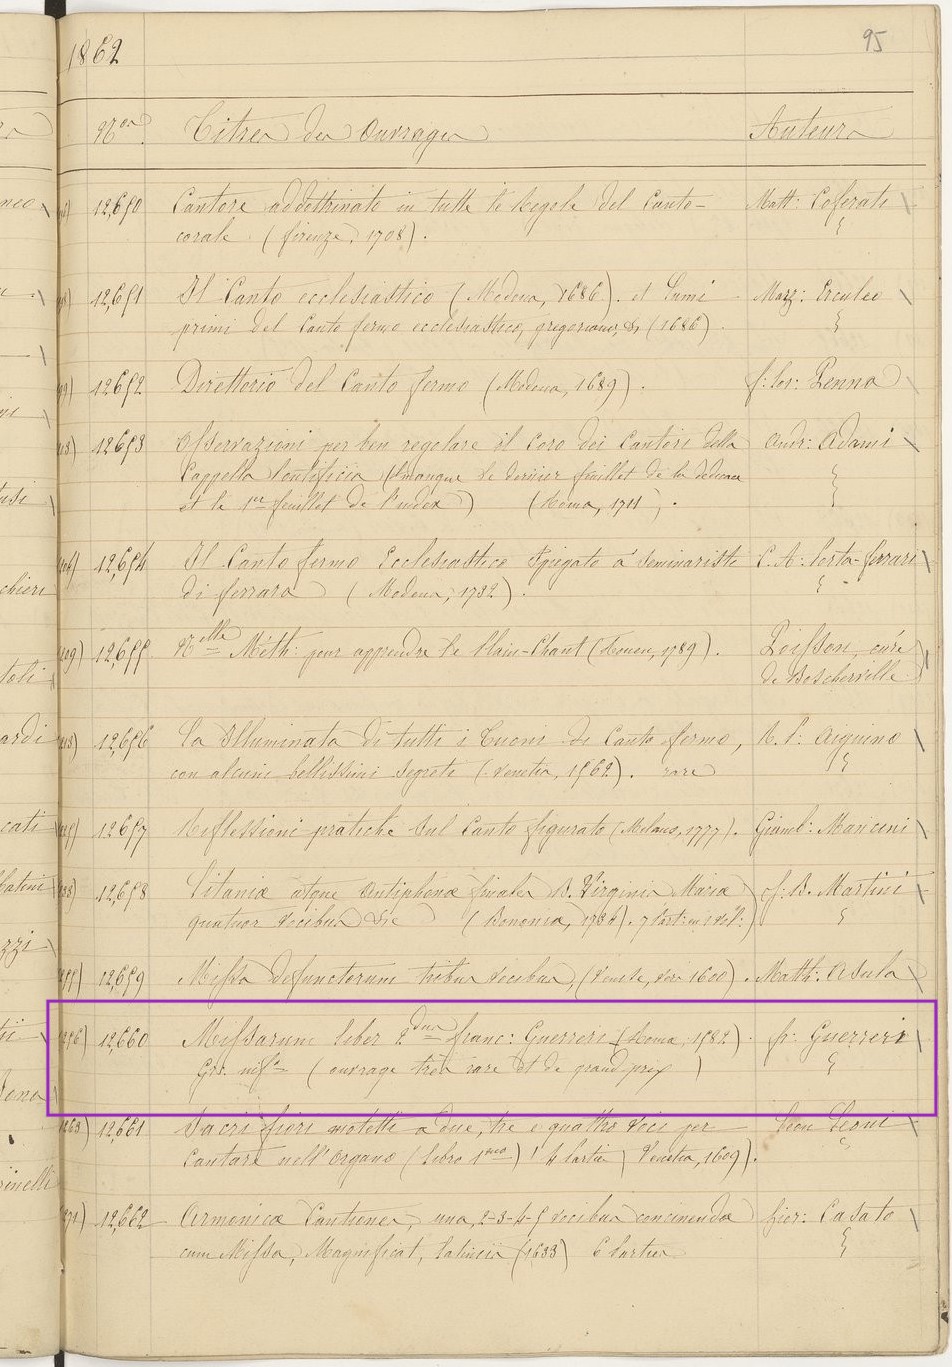 1862
95
Nos. Titres des Ouvrages Auteurs
12,650 Cantore addottrinato in tutte le Regole del Canto- Matt: Coferati
corale (firenze, 1708).
12,651 Il Canto ecclesiastico (Modena, 1686). et Lumi Marz: Erculeo
primi del Canto fermo ecclesiastico, gregoriano, & (1686)
12652 Direttorio del Canto fermo (Modena, 1689). f: lor: Penna
12653 Osservazioni per ben regolare il Coro dei Cantori della Andr: Adami
Cappella Pontificia (manque le dernier feuillet de la dedicace
et le 1er feuillet de l'index) (Roma, 1711).
12,654 Il Canto fermo Ecclesiastico spiegato a' seminaristi P. A: Porta-ferrari
di ferrara (Modena, 1732).
12,655 Nelle Méth: pour apprendre le Plain-Chant (Rouen, 1789). Poisson, curé
de Boscherville
12,656 La Illuminata di tutti i Tuoni di Canto fermo, R. P: Aiguino
con alcuni bellissimi segreti (Venetia, 1562). rare
12657 Riflessioni pratiche sul Canto figurato (Milano, 1777). Giamb: Mancini
12,658 Litaniæ atque Antiphonæ finales B. Virginis Mariæ f: B. Martini
quatuor vocibus (Bononia, 1734). 7 Part: in 1 vol:
12,659 Missa defunctorum tribus vocibus, (Venise, vers 1600). Matth: Asula
12,660 Missarum liber 2dus franc: Guerreri (Roma, 1582). fr: Guerreri
Gr. in fo (ouvrage très rare et de grand prix)
12,661 Sacri fiori motetti a due, tre e quattro voci per Leon Leoni
cantare nell'Organo (Libro 1mo) 4 Parties Venetia, 1609).
12,662 Armonicæ Cantiones, una, 2-3-4-5 vocibus concinendæ Gier: Casato
cum Missa, Magnificat, (1633) 6 Parties